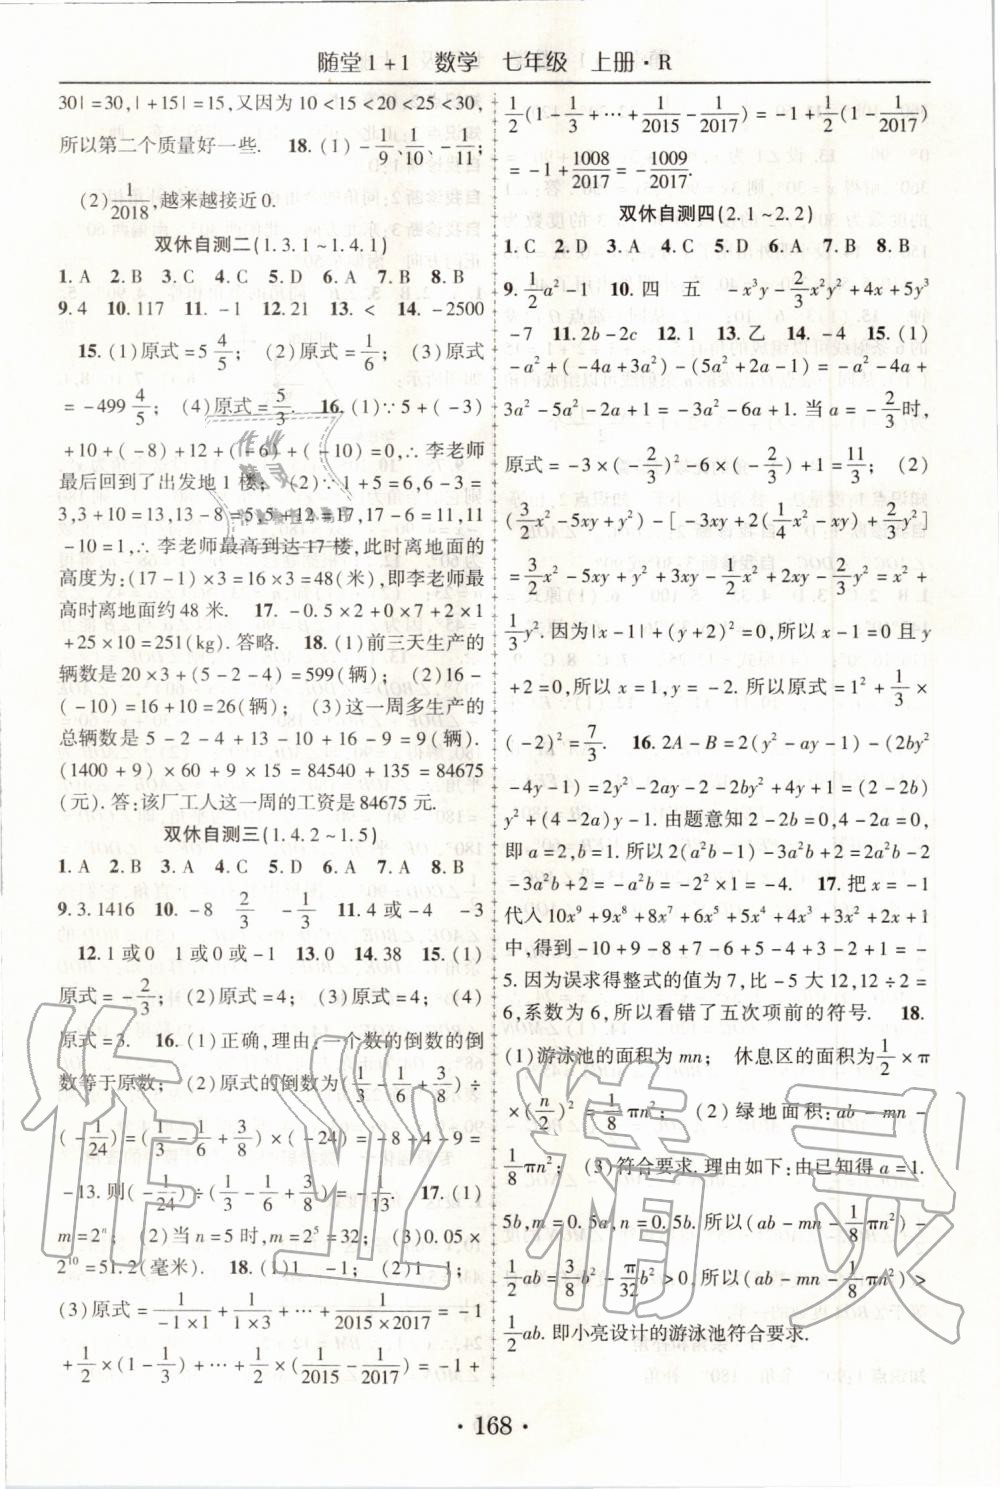 随堂1+1 数学 七年级 上册·R
30|=30,|+15|=15,又因为10<15<20<25<30,
所以第二个质量好一些. 18.(1)-1/9、1/10、-1/11;
(2)1/2018,越来越接近0.
双休自测二(1.3.1~1.4.1)
1.A 2.B 3.C 4.C 5.D 6.A 7.B 8.B
9.4 10.117 11.-1 12.21 13.< 14.-2500
15.(1)原式=5 4/5; (2)原式=1/6; (3)原式
=-499 4/5; (4)原式=5/3. 16.(1)∵5+(-3)
+10+(-8)+12+(-6)+(-10)=0,∴李老师
最后回到了出发地1楼; (2)∵1+5=6,6-3=
3,3+10=13,13-8=5,5+12=17,17-6=11,11
-10=1,∴李老师最高到达17楼,此时离地面的
高度为:(17-1)×3=16×3=48(米),即李老师最
高时离地面约48米. 17.-0.5×2+0×7+2×1
+25×10=251(kg).答略. 18.(1)前三天生产的
辆数是20×3+(5-2-4)=599(辆); (2)16-
(-10)=16+10=26(辆); (3)这一周多生产的
总辆数是5-2-4+13-10+16-9=9(辆).
(1400+9)×60+9×15=84540+135=84675
(元).答:该厂工人这一周的工资是84675元.
双休自测三(1.4.2~1.5)
1.A 2.B 3.A 4.C 5.D 6.A 7.A 8.B
9.3.1416 10.-8 2/3 -1/3 11.4或-4 -3
12.1或0 1或0或-1 13.0 14.38 15.(1)
原式=-2/3; (2)原式=4; (3)原式=4; (4)
原式=3. 16.(1)正确,理由:一个数的倒数的倒
数等于原数; (2)原式的倒数为(1/3-1/6+3/8)÷
(-1/24)=(1/3-1/6+3/8)×(-24)=-8+4-9=
-13.则(-1/24)÷(1/3-1/6+3/8)=-1/13. 17.(1)
m=2ⁿ; (2)当n=5时,m=2⁵=32; (3)0.05×
2¹⁰=51.2(毫米). 18.(1)1 -1; (2)1 -1;
(3)原式=1/(-1×1)+1/(1×3)+…+1/(2015×2017)=-1
+1/2×(1-1/3)+…+1/2(1/2015-1/2017)=-1+
1/2(1-1/3+…+1/2015-1/2017)=-1+1/2(1-1/2017)
=-1+1008/2017=-1009/2017.
双休自测四(2.1~2.2)
1.C 2.C 3.B 4.C 5.D 6.A 7.B 8.B
9.1/2a²-1 10.四 五 -x³y-2/3x²y²+4x+5y³
-7 11.2b-2c 12.1 13.乙 14.-4 15.(1)
-a²+(-4a+3a²)-(5a²+2a-1)=-a²-4a+
3a²-5a²-2a+1=-3a²-6a+1.当a=-2/3时,
原式=-3×(-2/3)²-6×(-2/3)+1=11/3; (2)
(3/2x²-5xy+y²)-[-3xy+2(1/4x²-xy)+2/3y²]
=3/2x²-5xy+y²+3xy-1/2x²+2xy-2/3y²=x²+
1/3y².因为|x-1|+(y+2)²=0,所以x-1=0且y
+2=0,所以x=1,y=-2.所以原式=1²+1/3×
(-2)²=7/3. 16.2A-B=2(y²-ay-1)-(2by²
-4y-1)=2y²-2ay-2-2by²+4y+1=(2-2b)
y²+(4-2a)y-1.由题意知2-2b=0,4-2a=0,
即a=2,b=1.所以2(a²b-1)-3a²b+2=2a²b-2
-3a²b+2=-a²b=-2²×1=-4. 17.把x=-1
代入10x⁹+9x⁸+8x⁷+6x⁶+5x⁵+4x⁴+3x³+2x²+2x+1
中,得到-10+9-8+7-6+5-4+3-2+1=-
5.因为误求得整式的值为7,比-5大12,12÷2=
6,系数为6,所以看错了五次项前的符号. 18.
(1)游泳池的面积为mn; 休息区的面积为1/2×π
×(n/2)²=1/8πn²; (2)绿地面积:ab-mn-
1/8πn²; (3)符合要求.理由如下:由已知得a=1.
5b,m=0.5a,n=0.5b.所以(ab-mn-1/8πn²)-
1/2ab=3/8b²-π/32b²>0,所以(ab-mn-1/8πn²)>
1/2ab.即小亮设计的游泳池符合要求.
·168·
作业精灵